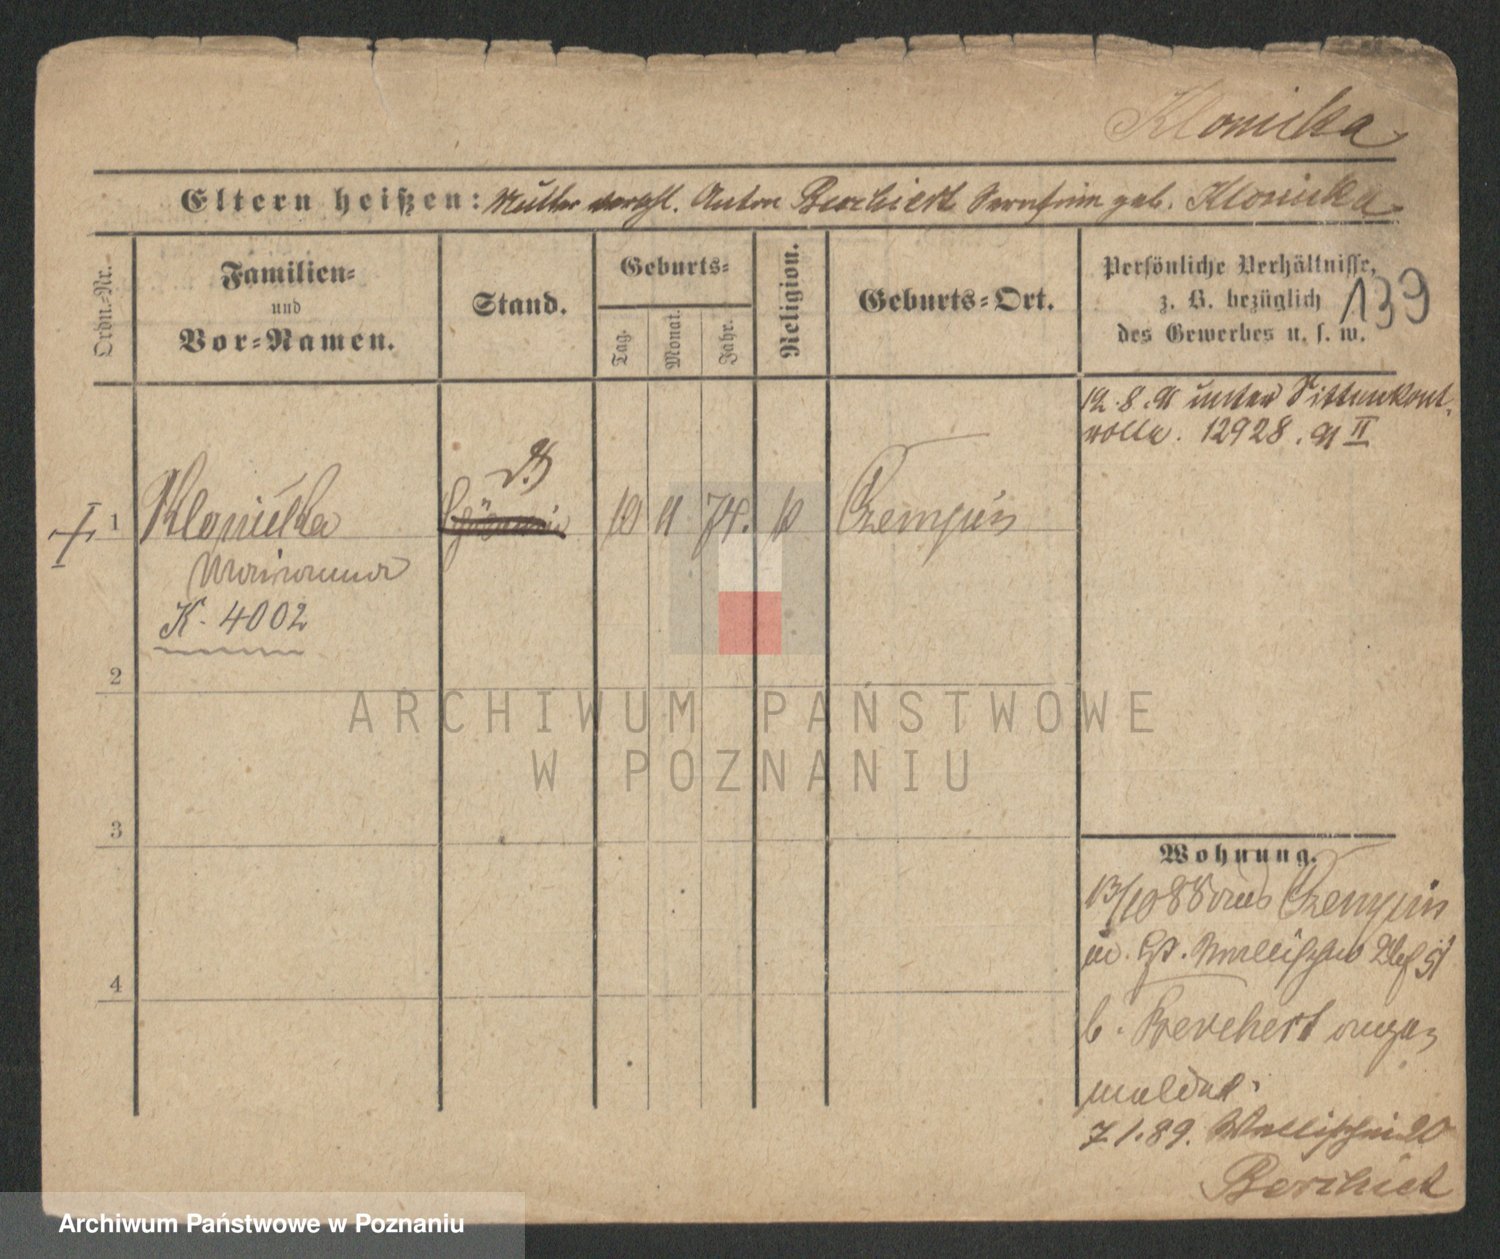 Klonicka
Eltern heißen: Mutter verehl. Anton Berchiert geb. Klonicka
Ordn.-Nr.
Familien-
und
Vor-Namen.
Stand.
Geburts-
Tag.
Monat.
Jahr.
Religion.
Geburts-Ort.
Persönliche Verhältnisse,
z. B. bezüglich
des Gewerbes u. s. w.
139
12.8.91 unter Sittenkont-
rolle. 12928.91 II
1
Klonicka
10 11 74. Czempin
Marianna
K. 4002
2
3
4
Wohnung.
13/10 88 aus Czempin
Wallischei
b. Berchert ange-
meldet.
7.1.89. Wallischei 20
Berchiet
ARCHIWUM PAŃSTWOWE
W POZNANIU
Archiwum Państwowe w Poznaniu